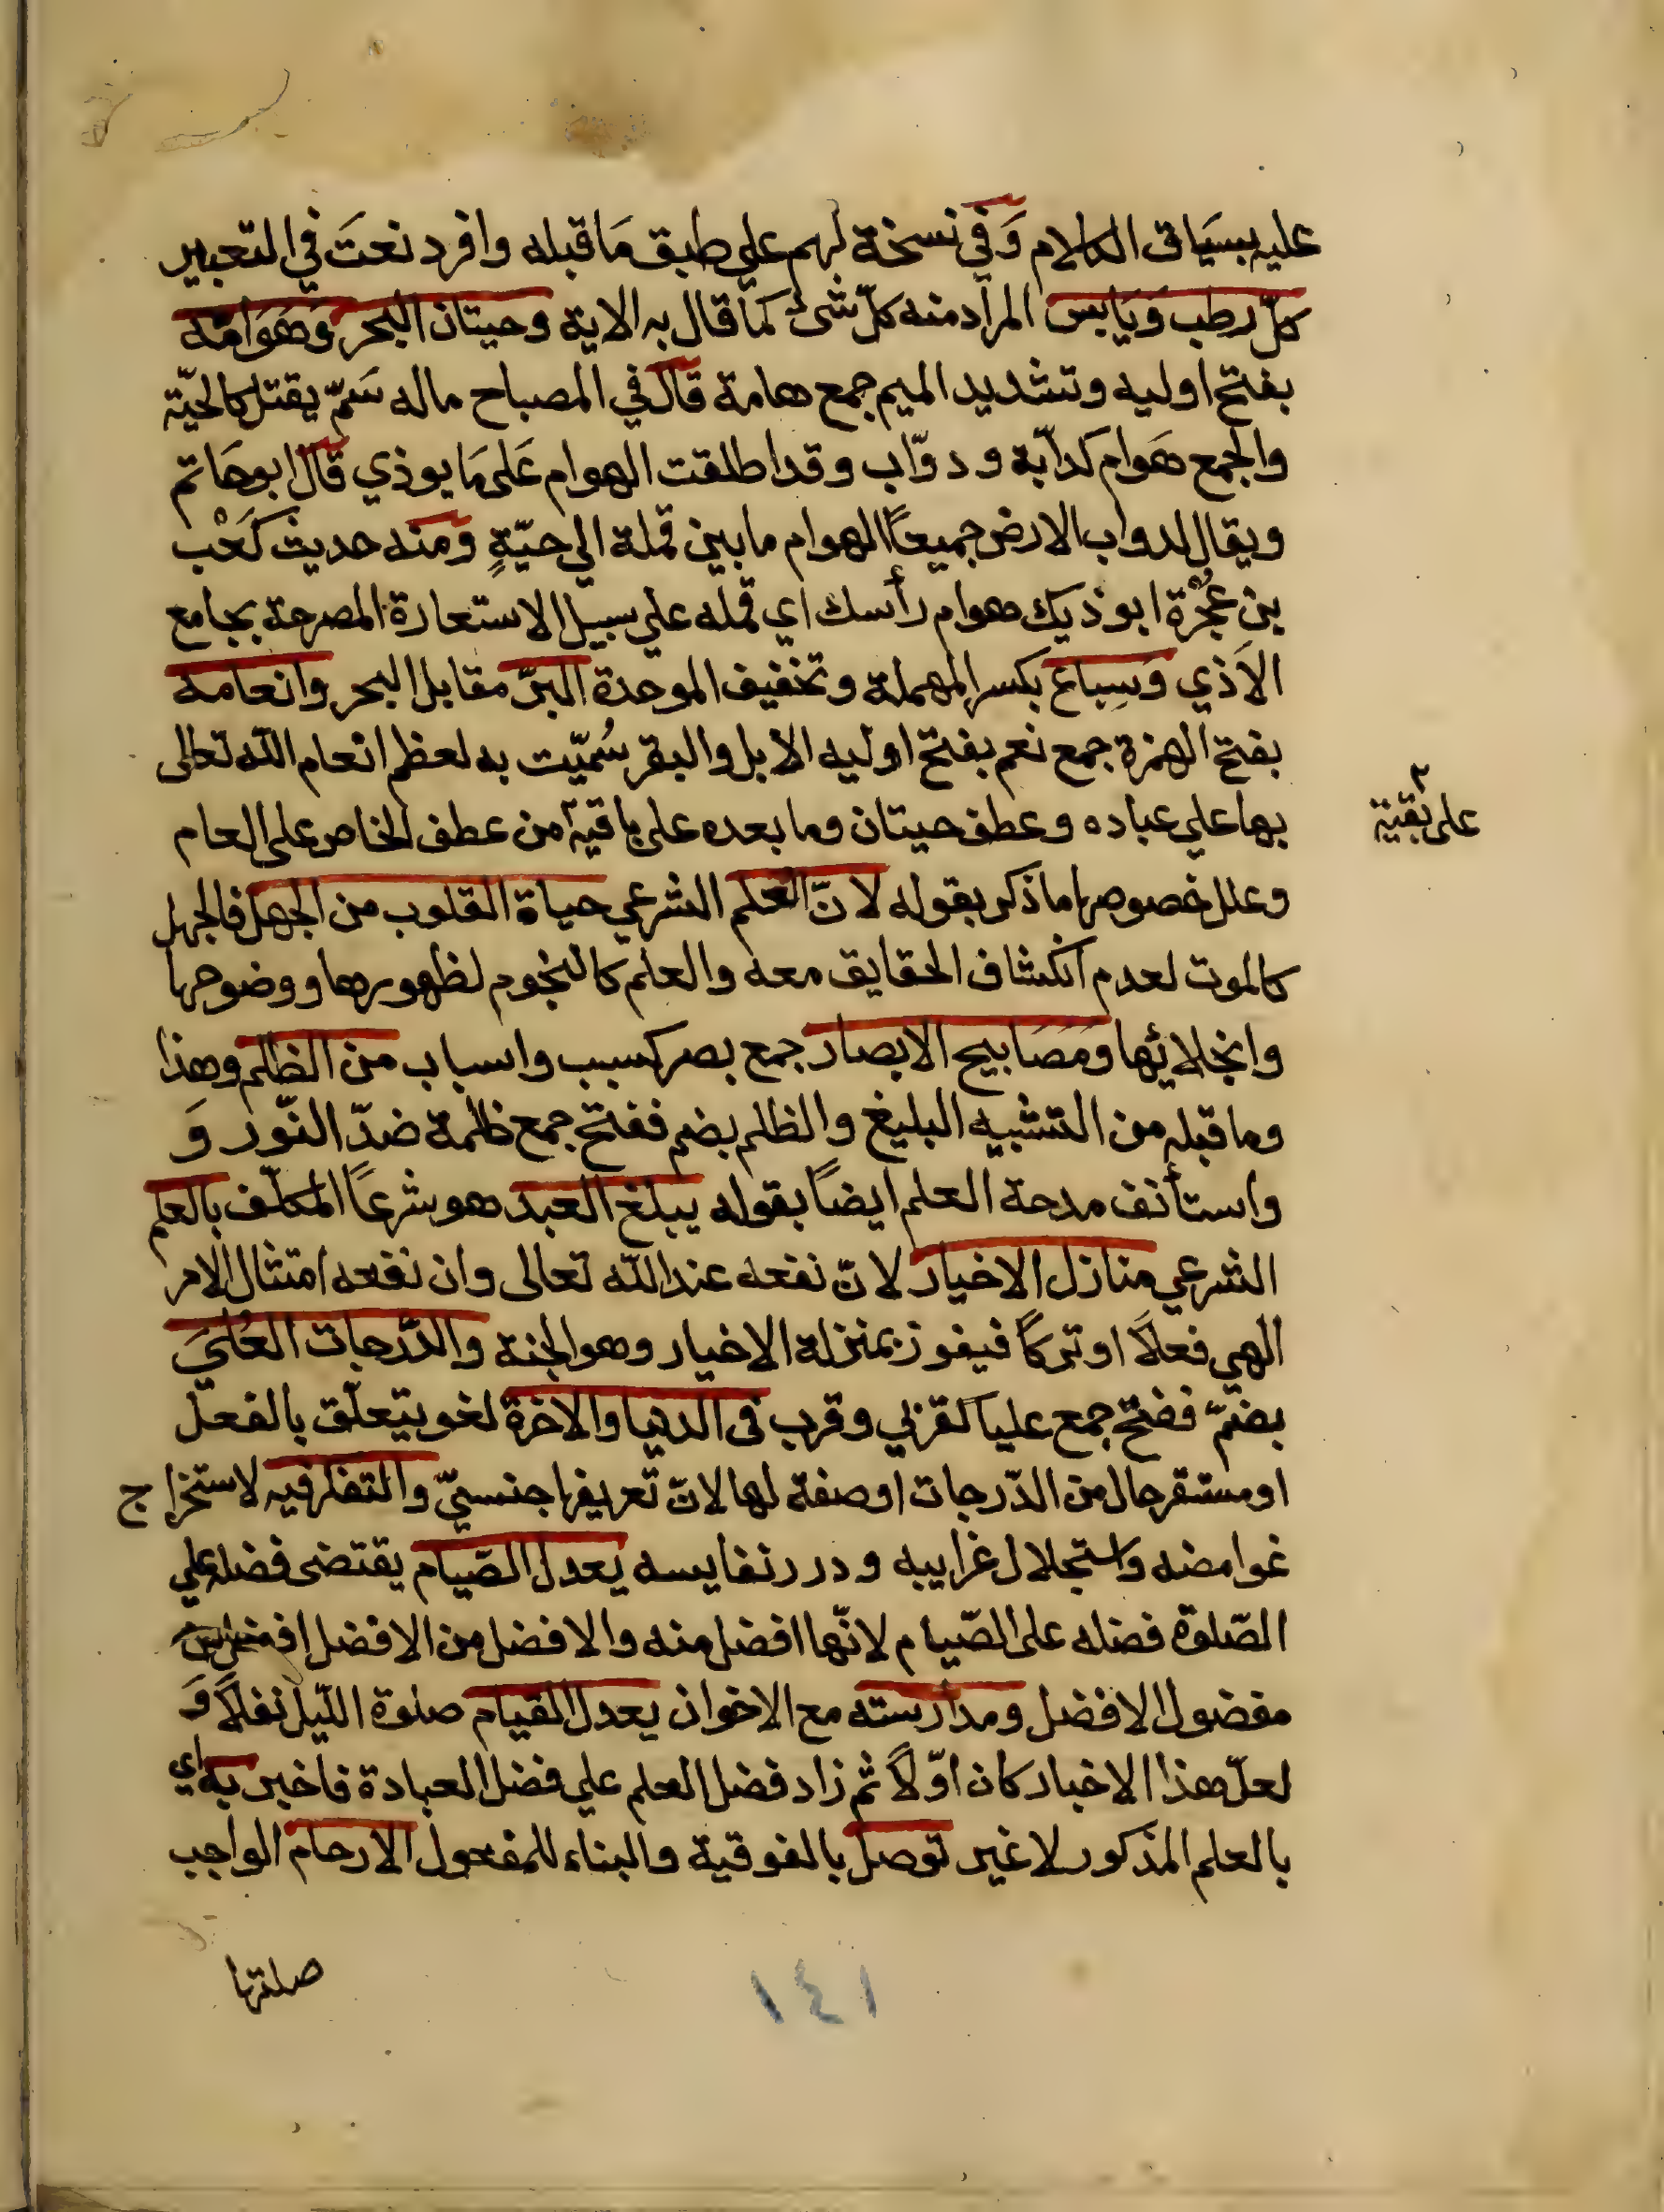 عليه بسياق الكلام وَفي نسخة لهم علي طبق مَا قبله وافرد نعتَ في التعبير
كلّ رطب وَيَابس المراد منه كلّ شئ كما قال به الاية وحيتان البحر وَهَوَامّه
بفتح اوليه وتشديد الميم جمع هامة قال في المصباح ماله سَمّ يقتل كالحيّة
والجمع هَوام كدآبة ودوّاب وقد اطلقت الهوام عَلى مَا يوذي قال ابوحَاتم
ويقال لدواب الارض جميعاً الهوام ما بين قملة الي حيّةٍ وَمنه حديث كَعْب
بن عُجْرَة ايوذيك هوام رأسك اي قمله علي سبيل الاستعارة المصرحة بجامع
الاَذي وَسِباع بكسر المهملة وتخفيف الموحدة البرّ مقابل البحر وانعامه
بفتح الهمزة جمع نعم بفتح اوليه الابل والبقر سُمّيت به لعظم انعام اللّه تعالى
بها علي عباده وعطف حيتان وما بعده على باقية من عطف الخاص على العام
على بقية
وعلل خصوصها ما ذكر بقوله لانّ العلم الشرعي حياة القلوب من الجهل فالجهل
كالموت لعدم انكشاف الحقايق معه والعلم كالنجوم لظهورها ووضوحها
وانجلائها وَمَصَابيح الابصار جمع بصر كسبب واسباب من الظلم وهذا
وما قبله من التشبيه البليغ والظلم بضم ففتح جمع ظلمة ضدّ النّور وَ
واستأنف مدحة العلم ايضاً بقوله يبلغ العبد هو شرعاً المكلّف بالعلم
الشرعي منازل الاخيار لانّ نفعه عند اللّه تعالى وان نفعه امتثال الامر
الهي فعلاً او تركاً فيفوز بمنزلة الاخيار وهو الجنة والدّرجات العُليَ
بضمّ ففتح جمع عليا كقربي وقرب في الدنيا والاخرة لغو يتعلّق بالفعل
او مستقر حال من الدّرجات او صفة لها لانّ تعريفها جنسيّ والتفكر فيه لاستخراج
غوامضه واستجلال غرايبه ودرر نفايسه يعدل الصّيام يقتضى فضله علي
الصّلوة فضله على الصّيام لانّها افضل منه والافضل من الافضل افضل من
مفضول الافضل ومدارسته مع الاخوان يعدل القيام صلوة اللّيل نفلاً وَ
لعلّ هذا الاخبار كان اوّلاً ثم زاد فضل العلم علي فضل العبادة فاخبر به اي
بالعلم المذكور لا غير توصل بالفوقية والبناء للمفعول الارحام الواجب
صلتها
١٤١